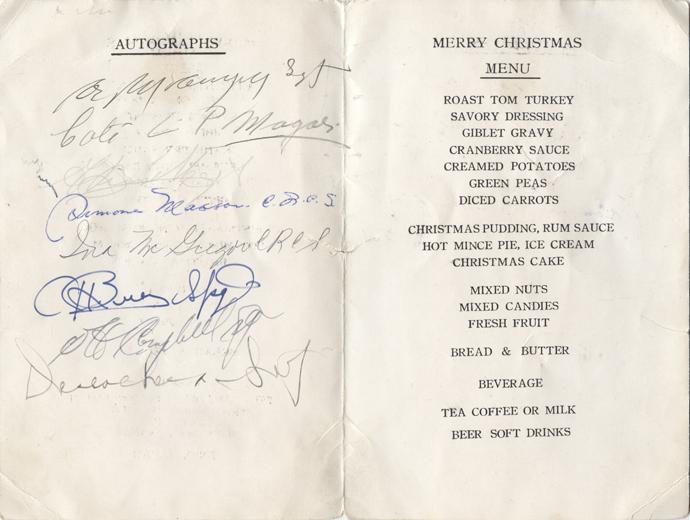 AUTOGRAPHS
Sgt
Coté L P
Simone Masson. C.R.C.S
Ina Mc Gregor C R C S
Campbell
MERRY CHRISTMAS
MENU
ROAST TOM TURKEY
SAVORY DRESSING
GIBLET GRAVY
CRANBERRY SAUCE
CREAMED POTATOES
GREEN PEAS
DICED CARROTS
CHRISTMAS PUDDING, RUM SAUCE
HOT MINCE PIE, ICE CREAM
CHRISTMAS CAKE
MIXED NUTS
MIXED CANDIES
FRESH FRUIT
BREAD & BUTTER
BEVERAGE
TEA COFFEE OR MILK
BEER SOFT DRINKS